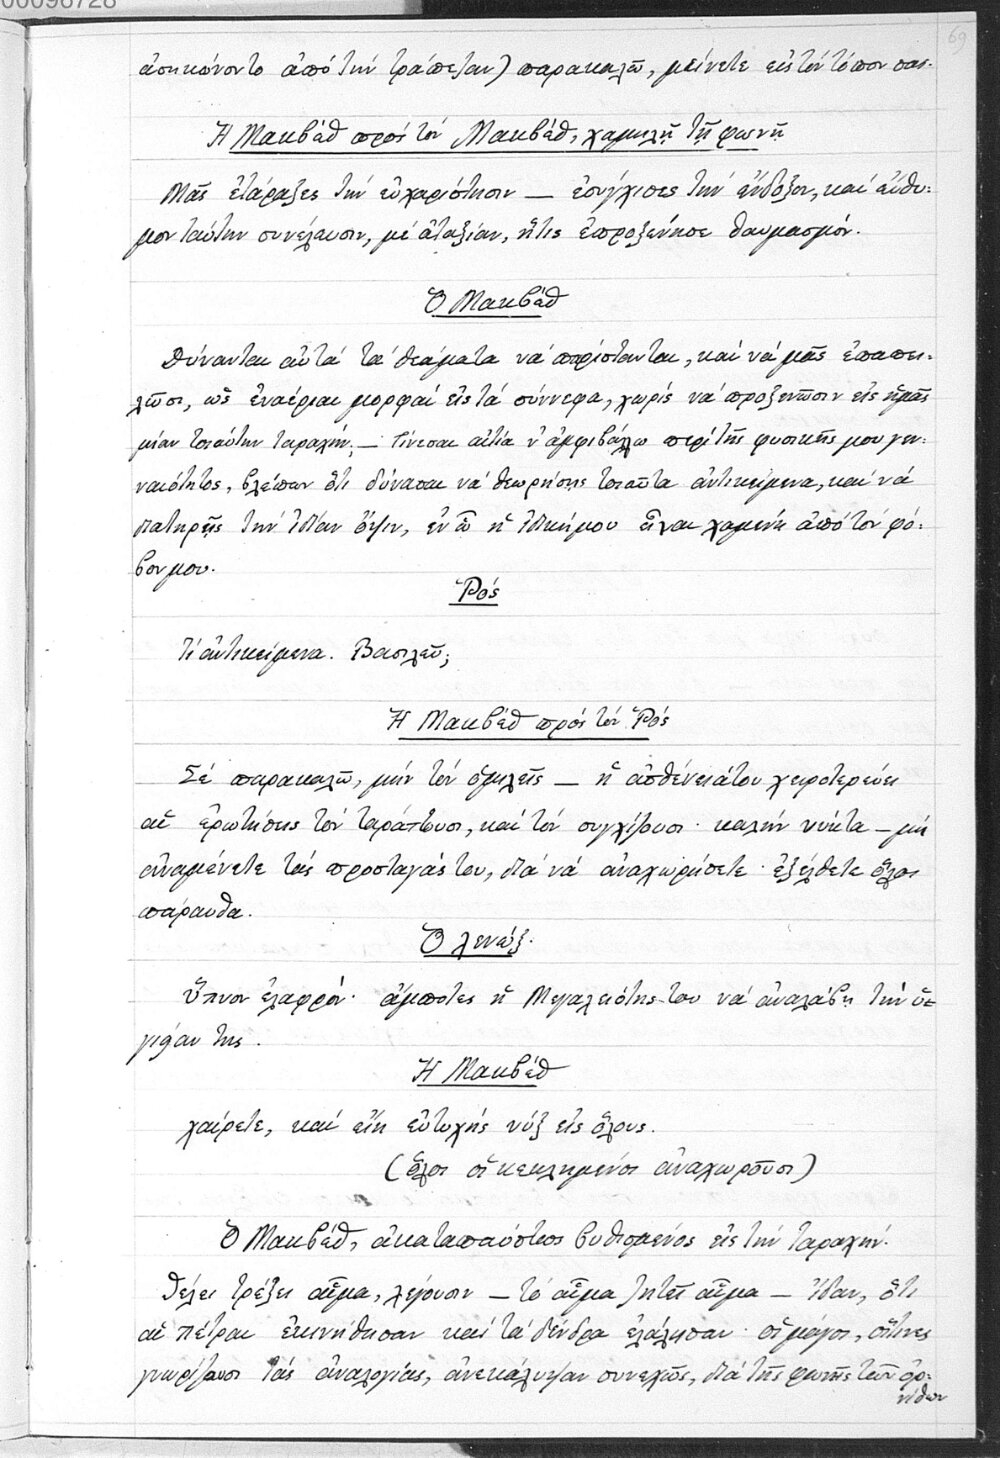 00096728
69
ἀσηκώνοντο ἀπό τήν τράπεζαν) παρακαλῶ, μείνετε εἰς τόν τόπον σας.
Ἡ Μακβέθ πρός τόν Μακβέθ, χαμηλῇ τῇ φωνῇ
Μᾶς ἐτάραξες τήν εὐχαρίστησιν — ἐσυγχισες τήν ἔνδοξον, καί εὔθυ-
μον ταύτην συνέλευσιν, μέ ἀταξίαν, ἥτις ἐπροξένησε θαυμασμόν.
Ὁ Μακβέθ
Δύνανται αὐτά τά θεάματα νά παρίστανται, καί νά μᾶς ἐπαπει-
λῶσι, ὡς ἐναέριαι μορφαί εἰς τά σύννεφα, χωρίς νά προξενῶσιν εἰς ἡμᾶς
μίαν τοιαύτην ταραχήν; — Γίνεσαι αἰτία ν' ἀμφιβάλλω περί τῆς φυσικῆς μου γεν-
ναιότητος, βλέπων ὅτι δύνασαι νά θεωρήσῃς τοιαῦτα ἀντικείμενα, καί νά
διατηρῇς τήν ἰδίαν ὄψιν, ἐν ᾧ ἡ ἰδική μου εἶναι χαμένη ἀπό τόν φό-
βον μου.
Ῥός
Τί ἀντικείμενα. Βασιλεῦ;
Ἡ Μακβέθ πρός τόν Ῥός
Σέ παρακαλῶ, μήν τόν ὁμιλεῖς — ἡ ἀσθένειά του χειροτερεύει
αἱ ἐρωτήσεις τόν ταράττουσι, καί τόν συγχίζουσι · καλήν νύκτα — μή
ἀναμένετε τάς προσταγάς του, διά νά ἀναχωρήσετε · ἐξέλθετε ὅλοι
πάραυθα.
Ὁ Λενώξ.
Ὕπνον ἐλαφρόν · ἄμποτες ἡ Μεγαλειότης του νά ἀναλάβῃ τήν ὑ-
γιείαν της.
Ἡ Μακβέθ
χαίρετε, καί εἴη εὐτυχής νύξ εἰς ὅλους.
(ὅλοι οἱ κεκλημένοι ἀναχωροῦσι)
Ὁ Μακβέθ, ἀκαταπαύστως βυθισμένος εἰς τήν ταραχήν.
Θέλει τρέξει αἷμα, λέγουσιν — τό αἷμα ζητεῖ αἷμα — Ἴδαν, ὅτι
αἱ πέτραι ἐκινήθησαν καί τά δένδρα ἐλάλησαν · οἱ μάγοι, οἵτινες
γνωρίζουσι τάς ἀναλογίας, ἀνεκάλυψαν συνεχῶς, διά τῆς φωνῆς τῶν ὀρ-
νίθων